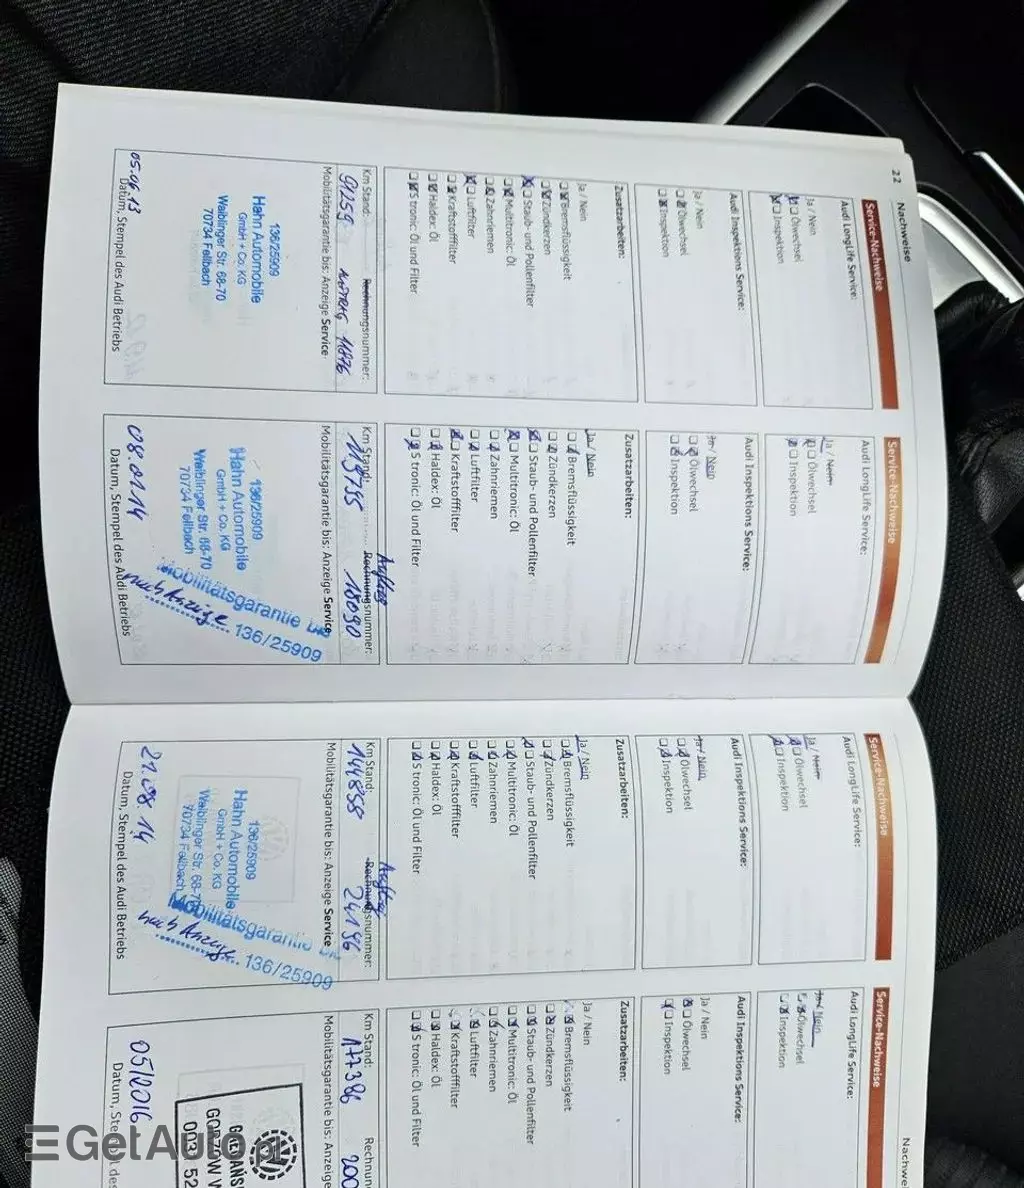 22
Nachweise
Service-Nachweise
Audi LongLife Service:
Ja / Nein
Ölwechsel
Inspektion
Audi Inspektions Service:
Ja / Nein
Ölwechsel
Inspektion
Zusatzarbeiten:
Ja / Nein
Bremsflüssigkeit
Zündkerzen
Staub- und Pollenfilter
Multitronic: Öl
Zahnriemen
Luftfilter
Kraftstofffilter
Haldex: Öl
S tronic: Öl und Filter
Km Stand: Rechnungsnummer:
91259 11896
Mobilitätsgarantie bis: Anzeige Service
136/25909
Hahn Automobile
GmbH + Co. KG
Waiblinger Str. 68-70
70734 Fellbach
05.06.13
Datum, Stempel des Audi Betriebs
Service-Nachweise
Audi LongLife Service:
Ja / Nein
Ölwechsel
Inspektion
Audi Inspektions Service:
Ja / Nein
Ölwechsel
Inspektion
Zusatzarbeiten:
Ja / Nein
Bremsflüssigkeit
Zündkerzen
Staub- und Pollenfilter
Multitronic: Öl
Zahnriemen
Luftfilter
Kraftstofffilter
Haldex: Öl
S tronic: Öl und Filter
Auftrag
Km Stand: Rechnungsnummer:
119795 18090
Mobilitätsgarantie bis: Anzeige Service
136/25909
Hahn Automobile
GmbH + Co. KG
Waiblinger Str. 68-70
70734 Fellbach
Mobilitätsgarantie bis
nach Anzeige 136/25909
08.01.14
Datum, Stempel des Audi Betriebs
Service-Nachweise
Audi LongLife Service:
Ja / Nein
Ölwechsel
Inspektion
Audi Inspektions Service:
Ja / Nein
Ölwechsel
Inspektion
Zusatzarbeiten:
Ja / Nein
Bremsflüssigkeit
Zündkerzen
Staub- und Pollenfilter
Multitronic: Öl
Zahnriemen
Luftfilter
Kraftstofffilter
Haldex: Öl
S tronic: Öl und Filter
Auftrag
Km Stand: Rechnungsnummer:
144859 24196
Mobilitätsgarantie bis: Anzeige Service
136/25909
Hahn Automobile
GmbH + Co. KG
Waiblinger Str. 68-70
70734 Fellbach
Mobilitätsgarantie bis
nach Anzeige 136/25909
21.08.14
Datum, Stempel des Audi Betriebs
Nachwe
Service-Nachweise
Audi LongLife Service:
Ja / Nein
Ölwechsel
Inspektion
Audi Inspektions Service:
Ja / Nein
Ölwechsel
Inspektion
Zusatzarbeiten:
Ja / Nein
Bremsflüssigkeit
Zündkerzen
Staub- und Pollenfilter
Multitronic: Öl
Zahnriemen
Luftfilter
Kraftstofffilter
Haldex: Öl
S tronic: Öl und Filter
Km Stand: Rechnun
177386 200
Mobilitätsgarantie bis: Anzeige
GORZÓW W
003 52
05/2016
Datum, Stempel des
GetAuto.pl